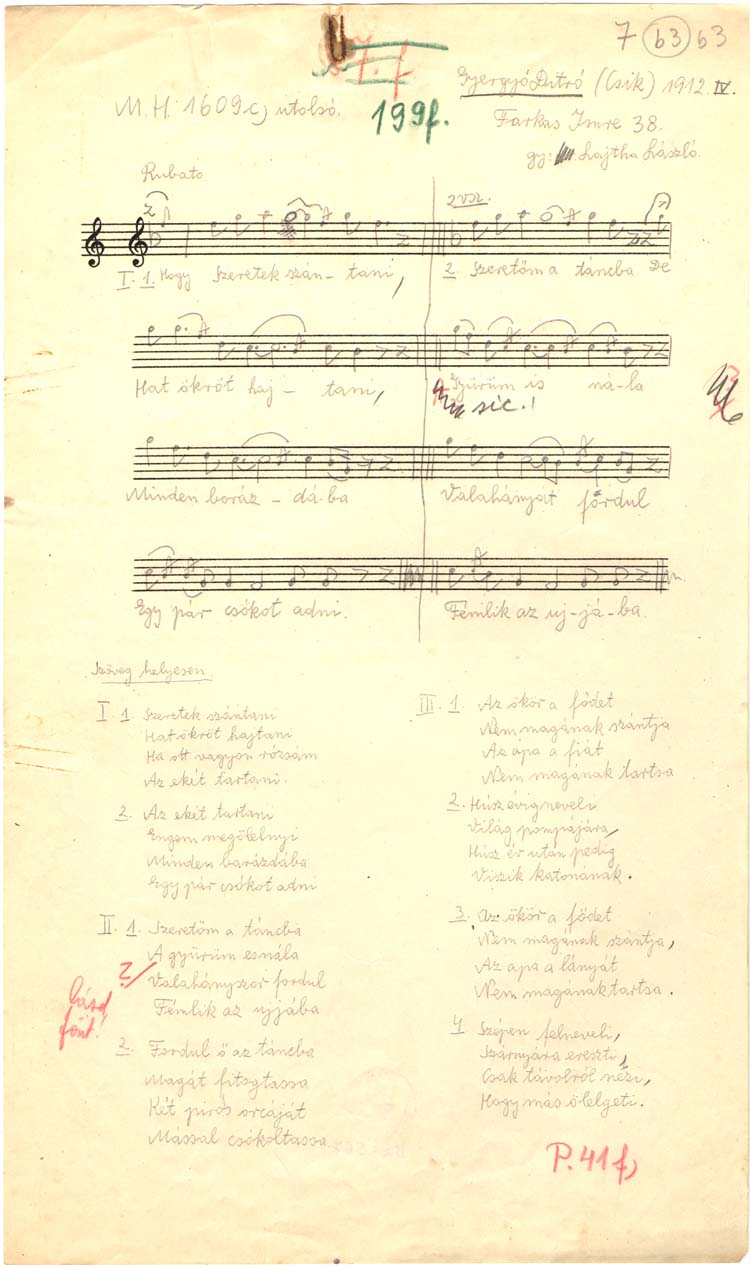 7 b3 b3
7. f.
Gyergyó Ditró (Csik) 1912. IV.
M. H. 1609 c) utolsó.
199f.
Farkas Imre 38.
gy: Lajtha László.
Rubato
2 vsz.
I. 1. Hogy szeretek szán- tani,
2. Szeretőm a táncba De
Hat ökröt haj - tani,
Gyürüm is ná-la
sic!
Minden boráz - dá-ba
Valahányat fördul
Egy pár csókot adni.
Fémlik az uj-já-ba.
Szöveg helyesen
I 1. Szeretek szántani
Hat ökröt hajtani
Ha ott vagyon rózsám
Az ekét tartani.
2. Az ekét tartani
Engem megölelnyi
Minden barázdába
Egy pár csókot adni
II. 1. Szeretőm a táncba
A gyürüm esnála
?/ Valahányszor fordul
Fémlik az ujjába
lásd fönt!
2. Fordul ő az táncba
Magát fitogtassa
Két piros orcáját
Mással csókoltassa
III. 1. Az ökör a fődet
Nem magának szántja
Az apa a fiát
Nem magának tartsa
2. Húsz évig neveli
Világ pompájára,
Húsz év után pedig
Viszik katonának.
3. Az ökör a fődet
Nem magának szántja,
Az apa a lányát
Nem magának tartsa.
4 Szépen felneveli,
Szárnyára ereszti,
Csak távolról nézi,
Hogy más ölelgeti.
P. 41 f)